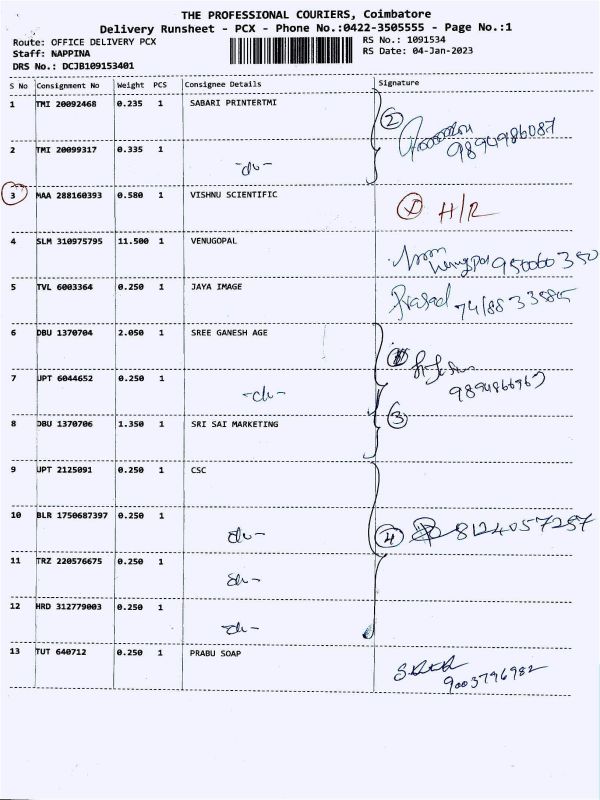 THE PROFESSIONAL COURIERS, Coimbatore
Delivery Runsheet - PCX - Phone No.:0422-3505555 - Page No.:1
Route: OFFICE DELIVERY PCX
Staff: NAPPINA
DRS No.: DCJB109153401
RS No.: 1091534
RS Date: 04-Jan-2023
S No Consignment No Weight PCS Consignee Details Signature
1 TMI 20092468 0.235 1 SABARI PRINTERTMI
2 9894986087
2 TMI 20099317 0.335 1 -do-
3 MAA 288160393 0.580 1 VISHNU SCIENTIFIC
H/R
4 SLM 310975795 11.500 1 VENUGOPAL
5 TVL 6003364 0.250 1 JAYA IMAGE
Prasad
6 DBU 1370704 2.050 1 SREE GANESH AGE
7 JPT 6044652 0.250 1 -do-
3
8 DBU 1370706 1.350 1 SRI SAI MARKETING
9 JPT 2125091 0.250 1 CSC
10 BLR 1750687397 0.250 1 -do-
4 8124057257
11 TRZ 220576675 0.250 1 -do-
12 HRD 312779003 0.250 1 -do-
13 TUT 640712 0.250 1 PRABU SOAP
9003796982